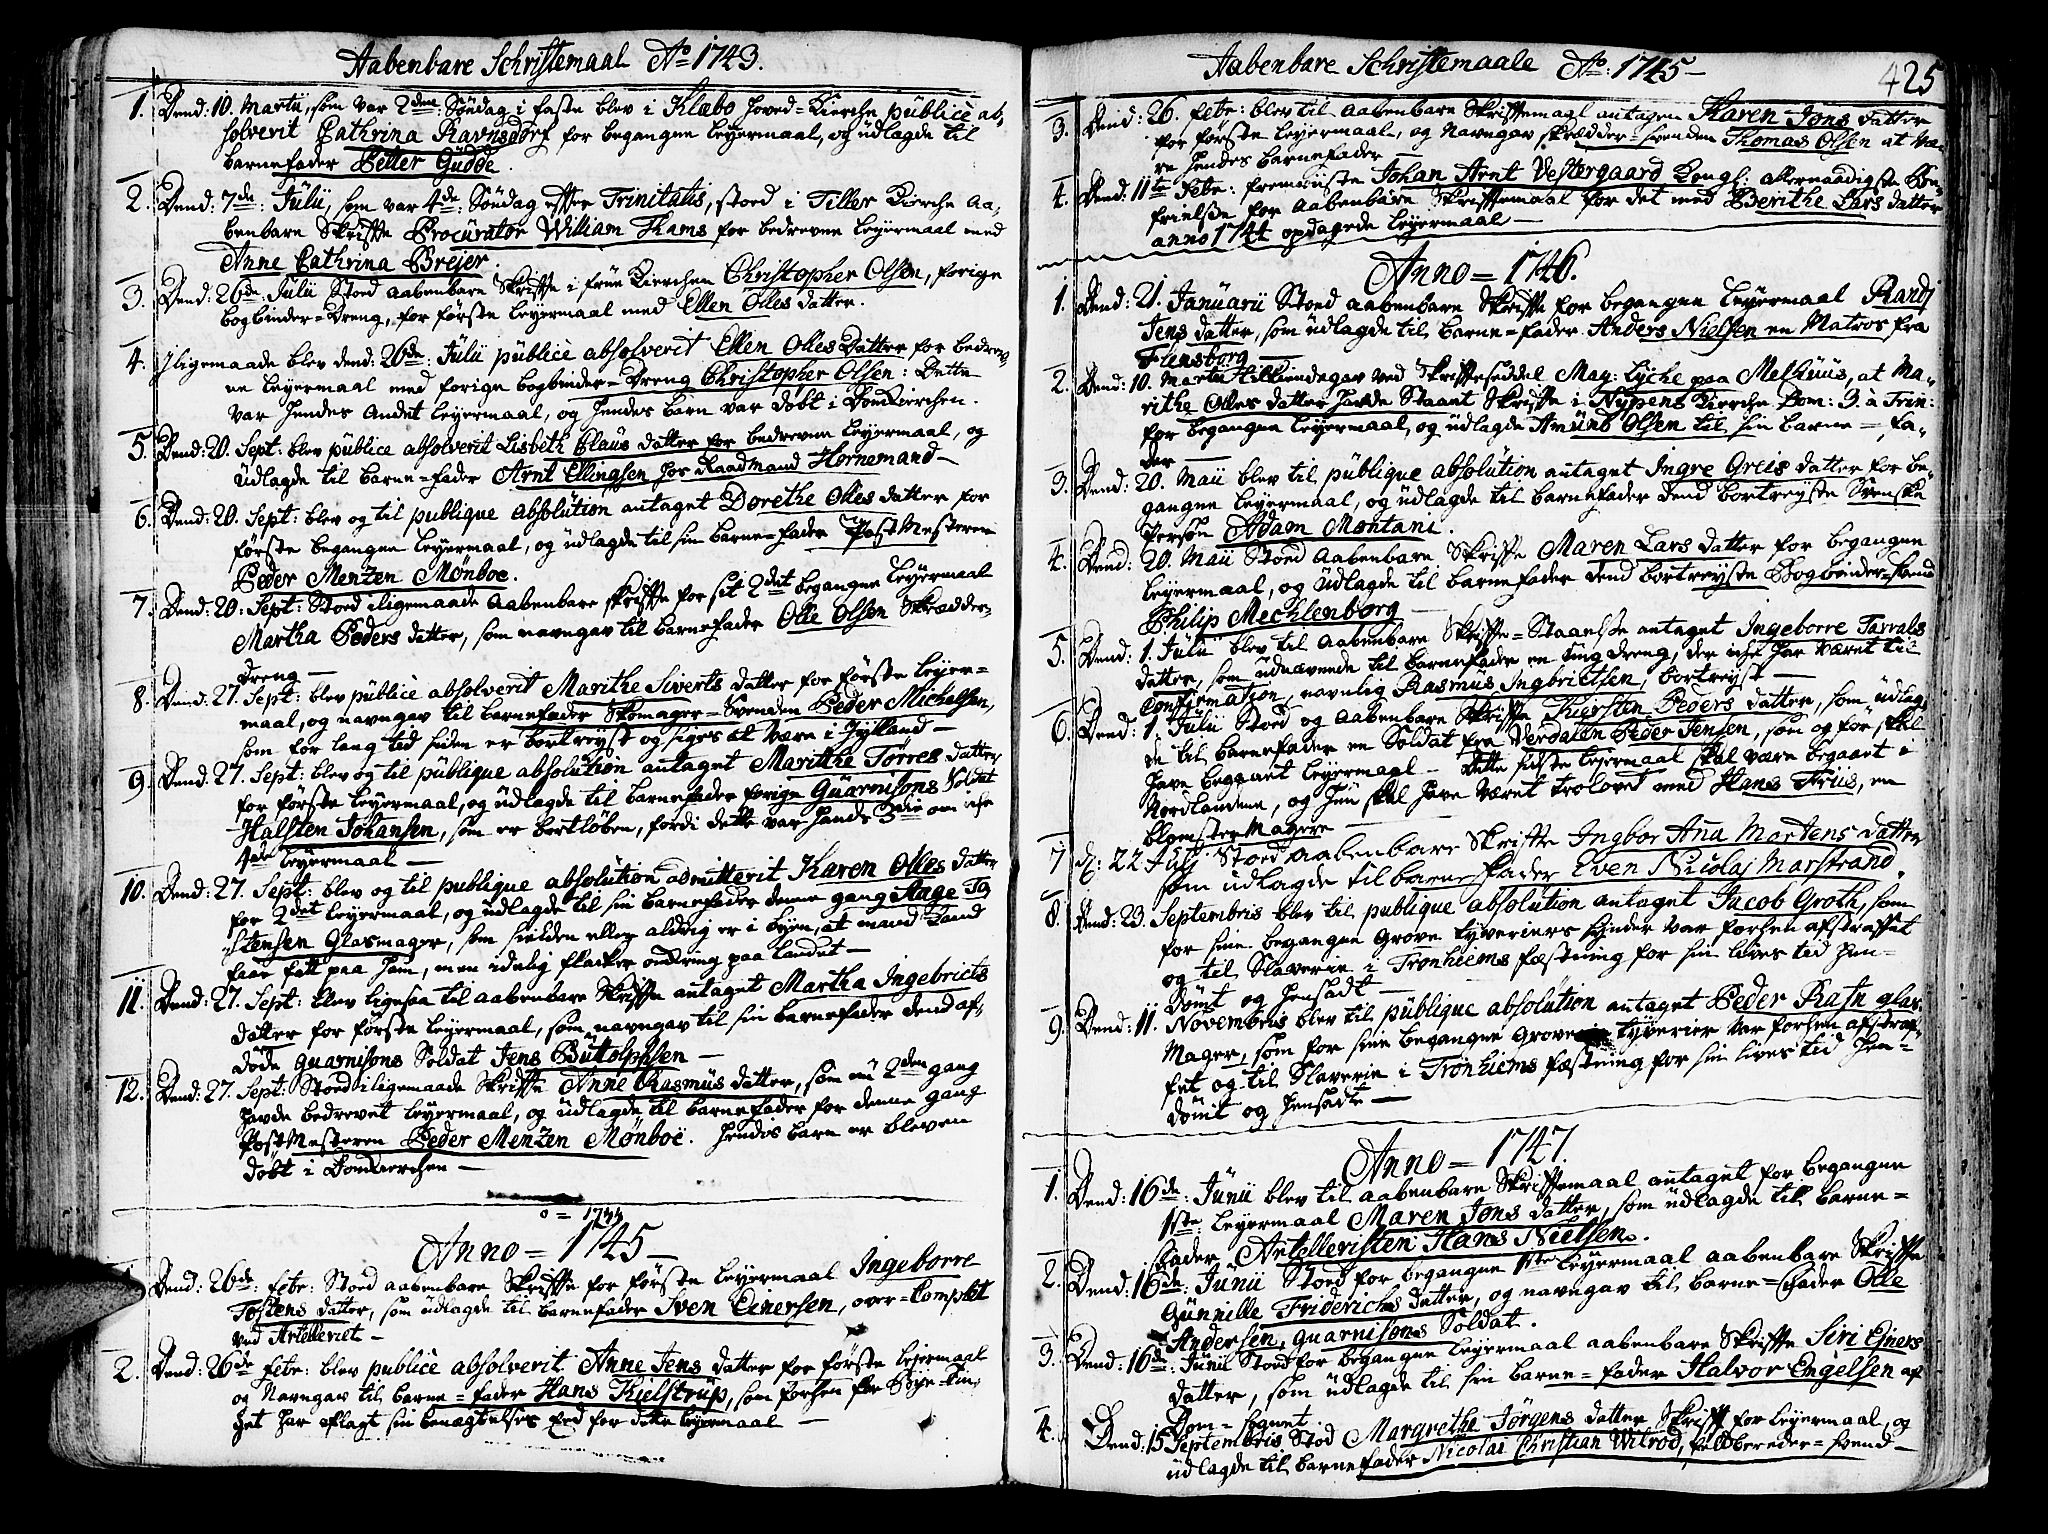 Aabenbare Schriftemaal Ao 1743.
1. Dend: 10. Martii, som var 2den Søndag i faste blev i Klæbo Hoved-Kierche püblicè ab-
solverit Cathrina Ravnsdorf for begangne Leyermaal, og üdlagde til
barnefader Petter Güdde.
2. Dend: 7de Jülii, som var 4de Søndag efter Trinitatis, stoed i Tiller Kirche Aa-
benbare Skrifte Procürator William Thams for bedrevne Leyermaal med
Anne Cathrina Brejer.
3. Dend: 26de Jülii Stoed Aabenbare Skrifte i früe Kierchen Christopher Olsen, forige
bogbinder-Dreng, for første Leyermaal med Ellen Olles datter.
4. Iligemaade blev dend: 26de: Jülii püblicè absolverit Ellen Olles Datter for bedrev-
ne Leyermaal med forige bogbinder-Dreng Christopher Olsen: Dette
var hendes Andet Leyermaal, og hendes barn var døbt i DomKierchen.
5. Dend: 20. Sept: blev püblice absolverit Lisbeth Claüs datter for bedrevne Leyermaal, og
üdlagde til barne-fader Arnt Ellingsen hos Raadmand Hornemand —
6. Dend: 20. Sept: blev og til publique absolütion antaget Dorethe Olles datter for
første begangne Leyermaal, og üdlagde til sin barne-fader PostMesteren
Peder Menzen Mønboe.
7. Dend: 20. Sept: Stoed iligemaade Aabenbare skrifte for sit 2det begangne Leyermaal
Martha Peders datter, som navngav til barnefader Olle Olsen Skrædder-
dreng —
8. Dend: 27. Sept: blev püblicè absolverit Marithe Siverts datter for første Leyer-
maal, og navngav til barnefader Skomager-Svenden Peder Michelsen,
som for lang tid siden er bortreyst og siges at være i Jylland —
9. Dend: 27. Sept: blev og til püblique absolütion antaget Maritthe Tørres datter
for første Leyermaal, og üdlagde til barnefader forige Guarnisons Soldat
Halsten Johansen, som er bortløben, fordi dette var hands 3die om ikke
4de Leyermaal —
10. Dend: 27. Sept: blev og til publique absolütion admitterit Karen Olles datter
for 2det Leyermaal, og üdlagde til sin barnefader denne gang Aage To-
stensen Glasmager, som sielden eller aldrig er i byen, at mand kand
faae fatt paa ham, men idelig flacker omkring paa Landet —
11. Dend: 27. Sept: blev ligesaa til aabenbare Skrifte antaget Martha Ingebricts
datter for første Leyermaal, som navngav til sin barnefader dend af-
døde guarnisons Soldat Jens Bütolphsen —
12. Dend: 27. Sept: Stoed iligemaade Skrifte Anne Rasmüs datter, som nü 2den gang
hafde bedrevet Leyermaal, og üdlagde til barnefader for denne gang
PostMesteren Peder Menzen Mønboe. hendis barn er bleven
døbt i DomKierchen —
o = 1744
Anno = 1745 —
1. Dend: 26de: febr: Stoed aabenbare Skrifte for første Leyermaal Ingeborre
Tostens datter, som üdlagde til barnefader Sven Einersen, over-Complet
ved Artelleriet —
2. Dend: 26de febr: blev publicè absolverit Anne Jens datter for første lejermaal
og Navngav til barne-fader Hans Kielstrüp, som forhen for Bøye-Tin-
get har aflagt sin benægtelses Eed for dette leyermaal —
Aabenbare Schriftemaale Ao: 1745 —
425
3. Dend: 26. febr: blev til aabenbare Skriftemaal antagen Karen Jons datter
for første Leyermaal, og Navngav skrædder-svenden Thomas Olsen at væ-
re hendes barnefader —
4. Dend: 11te Febr: fremviiste Johan Arnt Vestergaard Kongl: allernaadigste Be-
frielse for aabenbare Skriftemaal for det med Berithe Lars datter
anno 1744 opdagede Leyermaal —
Anno = 1746.
1. Dend: 21. Januarii Stoed aabenbare Skrifte for begangne Leyermaal Randj
Jens datter, som üdlagde til barne-fader Anders Nielsen en Matros fra
Flensborg —
2. Dend: 10. Martii Tilkiendegav ved Skrifteseddel May: Lÿche paa Melhüüs, at Ma-
rithe Olles datter havde Staaet Skrifte i Nÿpens Kierche Dom: 3. à Trin:
for begangne Leyermaal, og üdlagde Amünd Olsen til sin barne-fa-
der —
3. Dend: 20. Maii blev til püblique absolütion antaget Ingre Greis datter for be-
gangne Leyermaal, og üdlagde til barnefader dend bortreyste Svenske
Person Adam Montani.
4. Dend: 20. Maii Stoed Aabenbare Skrifte Maren Lars datter for begangne
Leyermaal, og üdlagde til barnefader dend bortreyste Bogbinder-svend
Philip Mechlenborg —
5. Dend: 1. Jülii blev til Aabenbare Skrifte-Staaelse antaget Ingeborre Tarralds
datter, som üdnævnede til barnefader en ung dreng, der icke har været til
Confirmation, navnlig Rasmus Ingbrictsen, bortreyst —
6. Dend: 1. Jülii Stoed og aabenbare Skrifte Kiersten Peders datter, som üdlag-
de til barnefader en Soldat fra Verdalen Peder Jensen, som og før skal
have begaaet Leyermaal — Dette sidste Lejermaal skal være begaaet i
Nordlandene, og hün skal have været trolovet med Hans Trüs, en
blomstermagere —
7 d: 22 Julj Stoed Aabenbare Skrifte Ingbor Aña Mortens datter
som udlagde til barnefader Even Nicolaj Marstrand.
8. Dend: 23. Septembris blev til publique absolütion antaget Jacob Groth, som
for sine begangne Grove tyverier var forhen afstraffet
og til Slaverie i Tronhiems fæstning for sin lives tid hen-
dømt og hensadt —
9. Dend: 11. Novembris blev til püblique absolütion antaget Peder Rasn glas-
Mager, som for sine begangne Grove tyverier var forhen afstraf-
fet og til Slaverie i Tronhiems fæstning for sin lives tid hen-
dømt og hensadte —
Anno = 1747.
1. Dend: 16de: Jünii blev til aabenbare Skriftemaal antaget for begangne
1ste: Leyermaal Maren Jons datter, som üdlagde til barne-
fader Artelleristen Hans Nielsen.
2. Dend: 16de: Jünii Stoed for begangne 1ste Leyermaal aabenbare Skrifte
Günnille Friderichs datter, og navngav til barne-fader Olle
Andersen, guarnisons Soldat.
3. Dend: 16de: Jünii Stoed for begangne Leyermaal aabenbare Skrifte Siri Ejners
datter, som üdlagde til sin barne-fader Halvor Engelsen af
Dom-sognet.
4. Dend: 15 Septembris Stod Margrethe Jörgens datter Skrift for Leyermaal, og
udlagde til barnefader Nicolai Christian Witrod, feldbereder-svend —